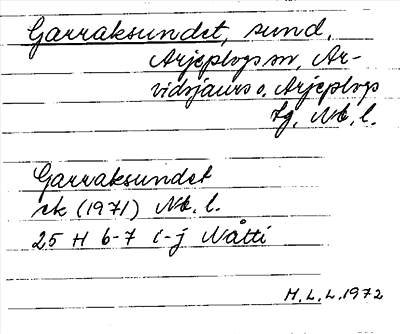 Garraksundet, sund.
Arjeplogs sn, Ar-
vidsjaurs o. Arjeplogs
tg, Nb. l.
Garraksundet
ek (1971) Nb. l.
25 H 6-7 i-j Nåtti
M. L. L. 1972